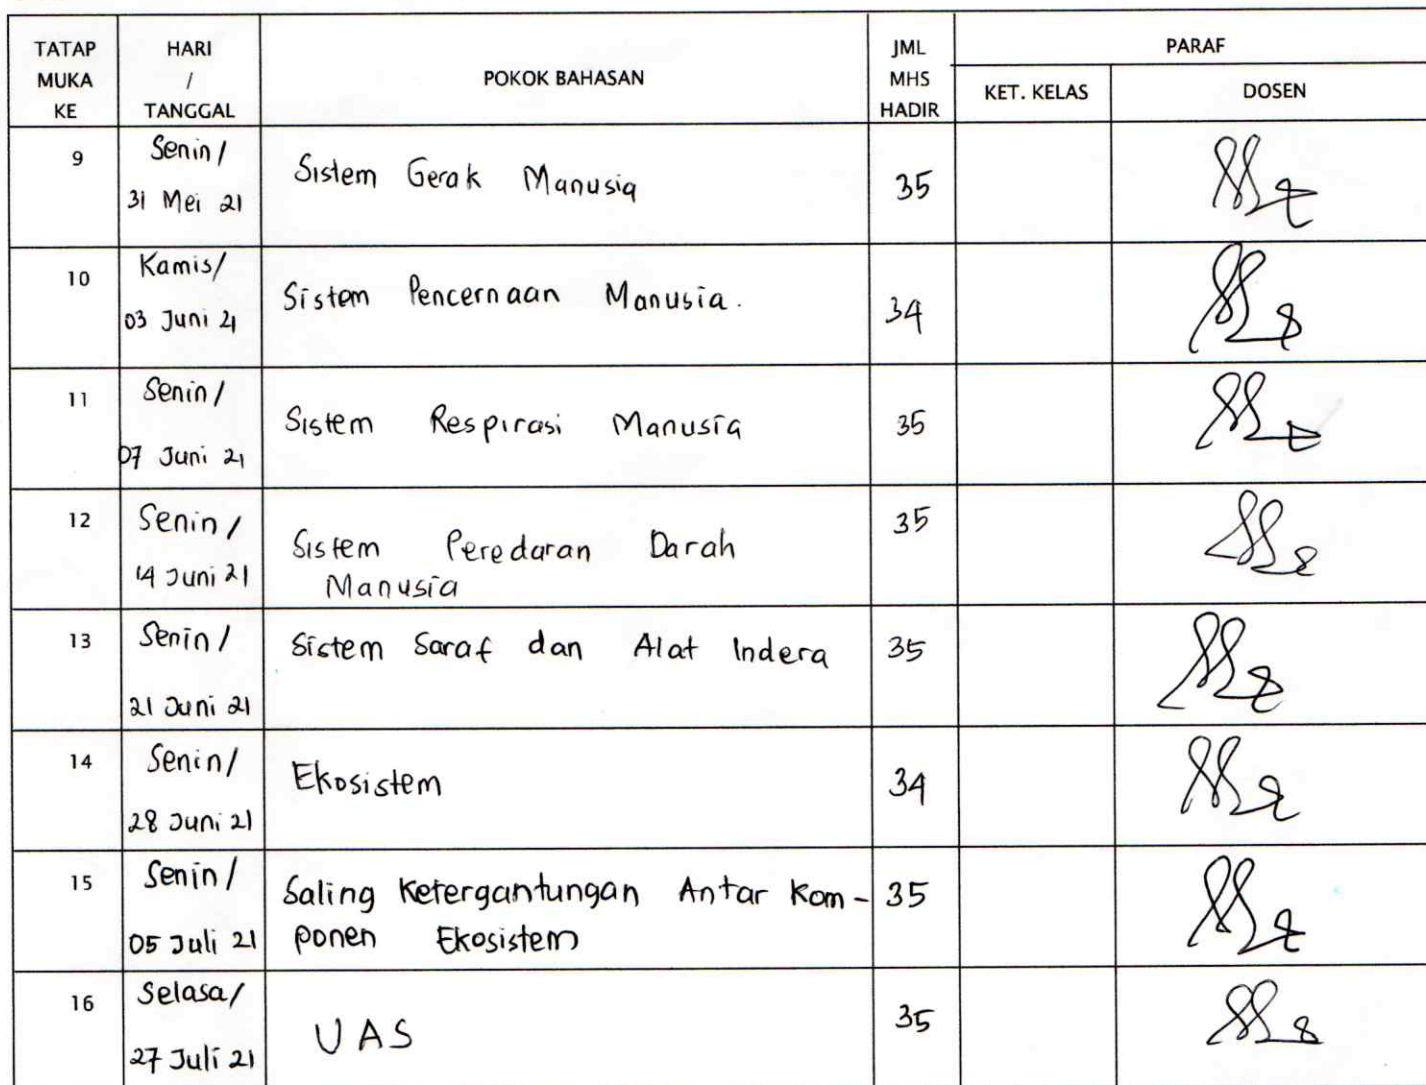 TATAP MUKA KE HARI / TANGGAL POKOK BAHASAN JML MHS HADIR PARAF
KET. KELAS DOSEN
9 Senin/ 31 Mei 21 Sistem Gerak Manusia 35
10 Kamis/ 03 Juni 21 Sistem Pencernaan Manusia. 34
11 Senin/ 07 Juni 21 Sistem Respirasi Manusia 35
12 Senin/ 14 Juni 21 Sistem Peredaran Darah
Manusia 35
13 Senin/ 21 Juni 21 Sistem Saraf dan Alat Indera 35
14 Senin/ 28 Juni 21 Ekosistem 34
15 Senin/ 05 Juli 21 Saling Ketergantungan Antar Kom-
ponen Ekosistem 35
16 Selasa/ 27 Juli 21 UAS 35